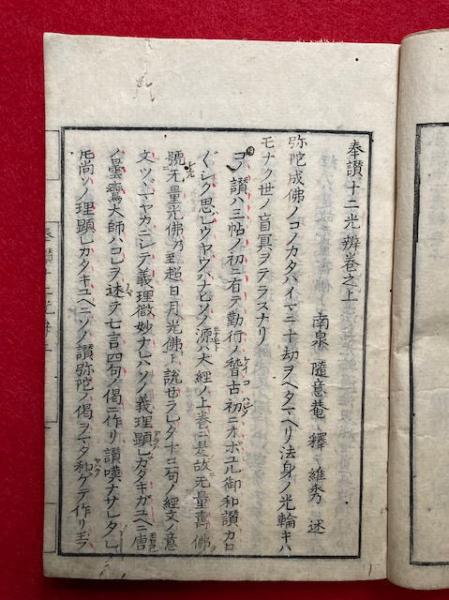 奉讃十二光辨巻之上
南泉 隨意菴 釋 維秀 述
弥陀成佛ノコノカタハイマニ十劫ヲヘタマヘリ法身ノ光輪キハ
モナク世ノ盲冥ヲテラスナリ
コノ讃ハ三帖ノ初ニ有テ勤行ノ稽古初ニオボユル御和讃カロ
〱シク思ヒ ナレ ソノ源ハ大經ノ上巻ニ是故无量壽佛
號无量光佛乃至超日月光佛ト說セラレタ十二句ノ經文ノ意
文ツヾマヤカニシテ義理微妙ナレハソノ義理顕レガタキガユヘニ唐
ノ曇鸞大師ハコレヲ述テ七言四句ノ偈ニ作リ讃嘆ナサレタレ
尚ソノ理顕レガタキユヘニソノ讃弥陀ノ偈ヲマタ和ゲテ作リ玉フ